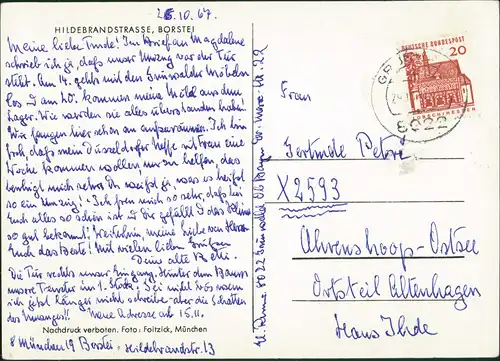 26.10.67.
HILDEBRANDSTRASSE, BORSTEI
Meine liebe Trude! Im Brief an Magdalene
schrieb ich ja, dass unser Umzug vor der Tür
steht. Am 14. geht's mit den Grünwalder Möbeln
los u am 20. kommen meine Möbel aus dem
Lager. Wie werden wir alles überstanden haben!
Wir fangen hier schon an auszuräumen. Ich bin
froh, dass mein Düsseldorfer Neffe mit Frau eine
Woche kommen wollen um zu helfen, das
beruhigt mich sehr. Du weisst ja, was es heisst
so ein Umzug! Ich freu mich so sehr, dass bei
Euch alles so schön ist u Dir gefällt u das Klima
so gut bekommt! Weiterhin, meine Liebe von Herzen
Euch das Beste! Mit vielen lieben Grüssen
Deine alte
Die Tür rechts unser Eingang. Hinter dem Baum
unsere Fenster im 1. Stock! Sei nicht bös wenn
ich jetzt länger nicht schreibe - aber die Schatten
des Umzuges!! Neue Adresse ab 15.11.
Nachdruck verboten. Foto: Foitzick, München
8 München 19 Borstei - Hildebrandstr. 13
8022 Grünwald
DEUTSCHE BUNDESPOST
20
8022
Frau
Gertrude Petri
X2593
Ahrenshoop-Ostsee
Ortsteil Altenhagen
Haus Ihde